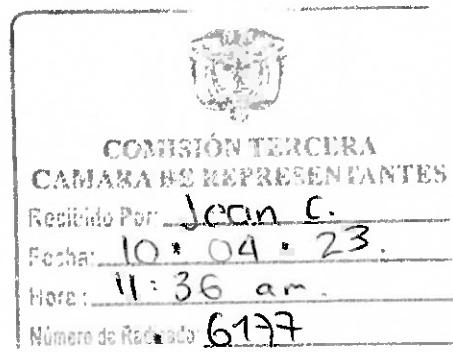 COMISIÓN TERCERA
CAMARA DE REPRESENTANTES
Recibido Por: Jean C.
Fecha: 10 • 04 • 23.
Hora: 11:36 am.
Número de Radicado: 6177